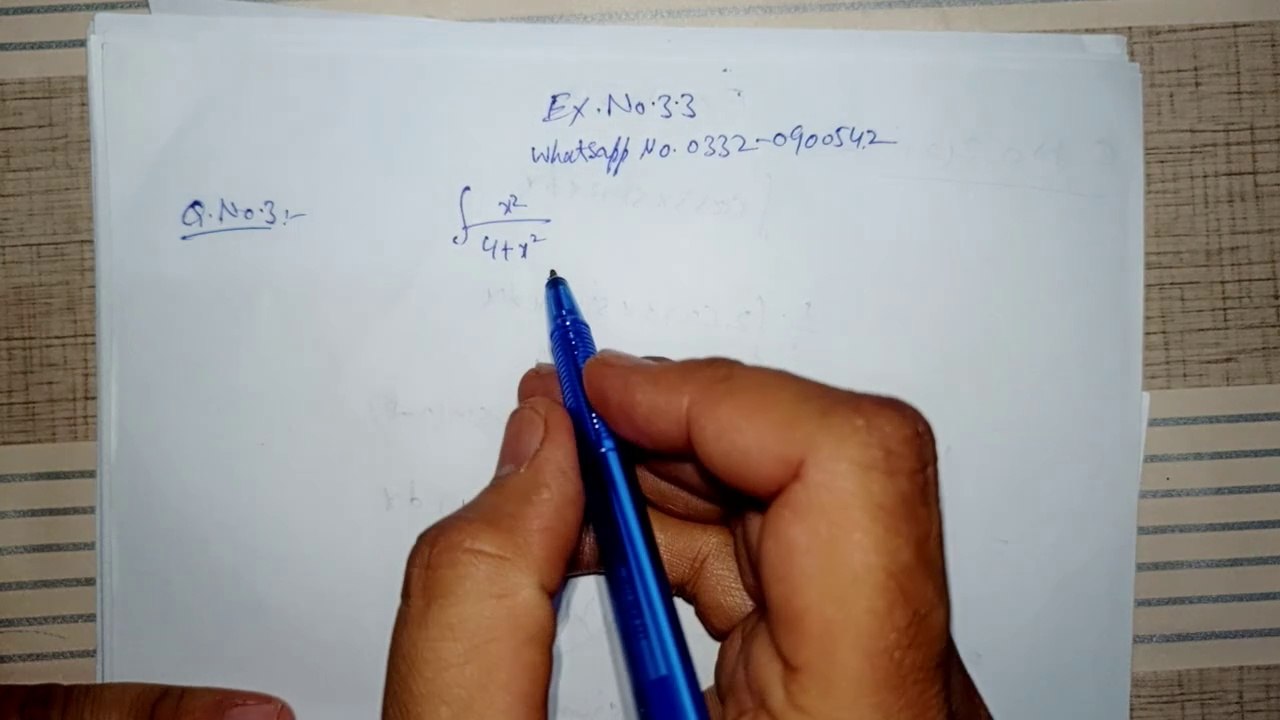 Ex.No.3.3
Whatsapp No. 0332-0900542
Q.No.3:-
∫ x²
4+x²